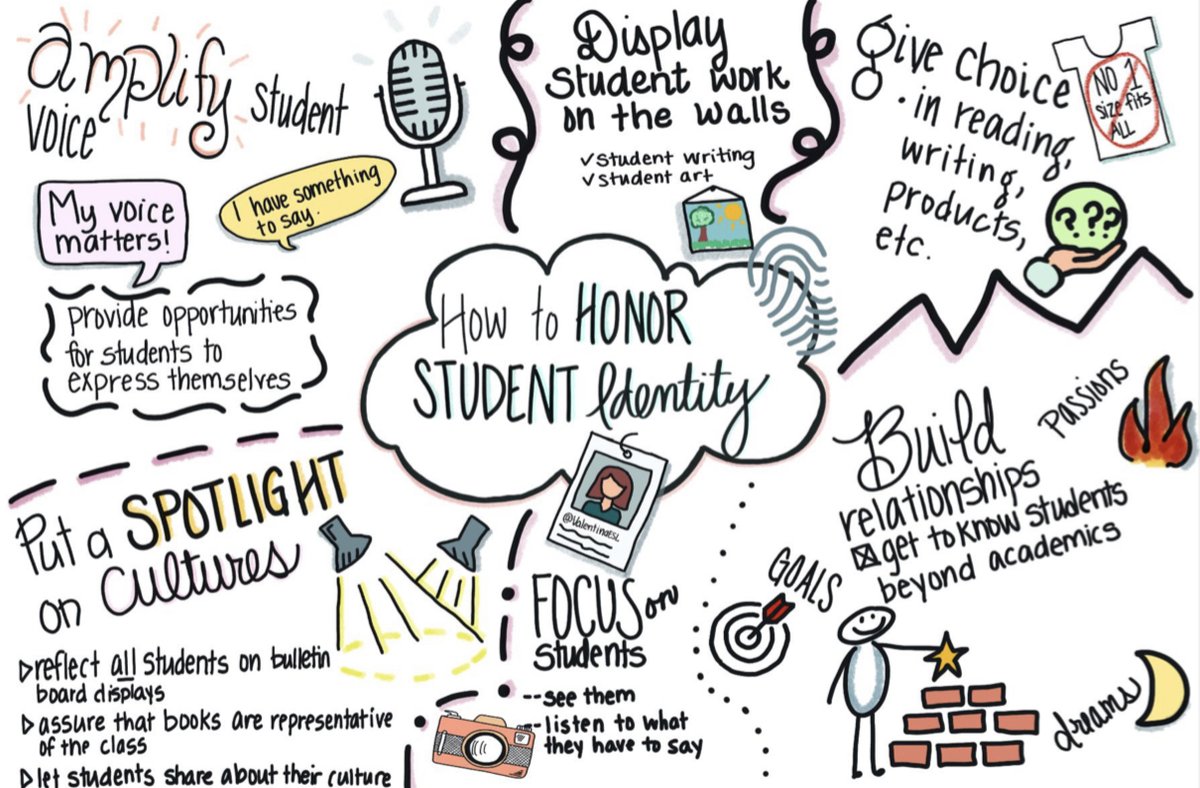 amplify student
voice
My voice
matters!
I have something
to say.
provide opportunities
for students to
express themselves
Display
student work
on the walls
✓student writing
✓student art
Give choice
· in reading,
writing,
products,
etc.
NO 1
size fits
ALL
? ? ?
How to HONOR
STUDENT Identity
@ValentinaESL
Put a SPOTLIGHT
on Cultures
▷reflect all students on bulletin
board displays
▷assure that books are representative
of the class
▷let students share about their culture
FOCUS on
students
--see them
--listen to what
they have to say
Build
relationships
☒get to know students
beyond academics
Passions
GOALS
dreams